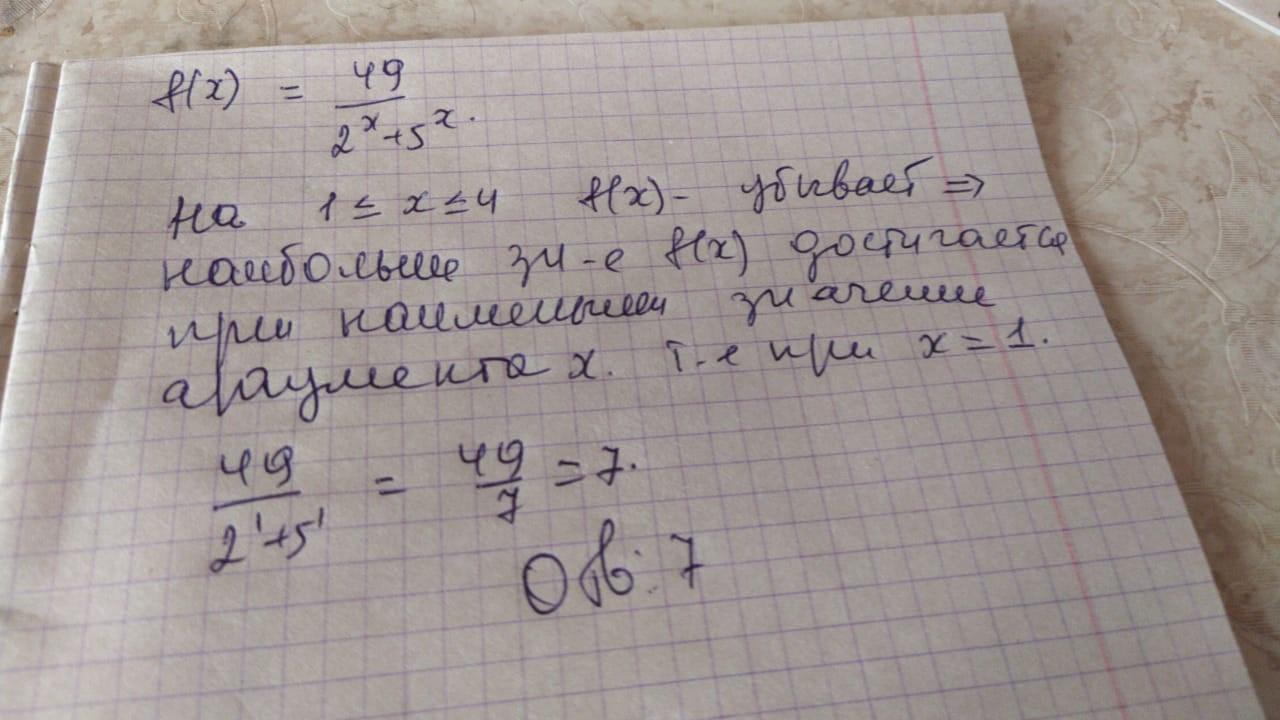 f(x) = 49 / 2^x + 5^x.
На 1 ≤ x ≤ 4 f(x) - убывает ⇒
наибольше зн-е f(x) достигается
при наименьшем значении
аргумента x. т-е при x = 1.
49 / 2^1 + 5^1 = 49 / 7 = 7.
Отв: 7